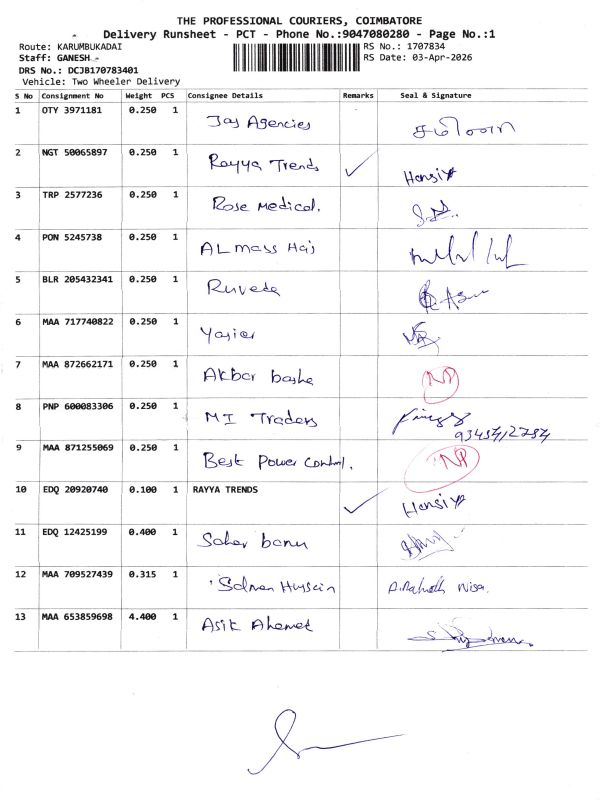 THE PROFESSIONAL COURIERS, COIMBATORE
Delivery Runsheet - PCT - Phone No.:9047080280 - Page No.:1
Route: KARUMBUKADAI RS No.: 1707834
Staff: GANESH RS Date: 03-Apr-2026
DRS No.: DCJB170783401
Vehicle: Two Wheeler Delivery
S No Consignment No Weight PCS Consignee Details Remarks Seal & Signature
1 OTY 3971181 0.250 1 Jas Agencies
2 NGT 50065897 0.250 1 Rayya Trends ✓ Hansiya
3 TRP 2577236 0.250 1 Rose Medical.
4 PON 5245738 0.250 1 ALmass Haj
5 BLR 205432341 0.250 1 Ruveda
6 MAA 717740822 0.250 1 Yasier
7 MAA 872662171 0.250 1 Akbar basha NP
8 PNP 600083306 0.250 1 MI Traders
9 MAA 871255069 0.250 1 Best Power Control. NP
10 EDQ 20920740 0.100 1 RAYYA TRENDS ✓ Hansiya
11 EDQ 12425199 0.400 1 Saher banu
12 MAA 709527439 0.315 1 Salman Hussain A.Rahmath Nisa.
13 MAA 653859698 4.400 1 Asik Ahamed